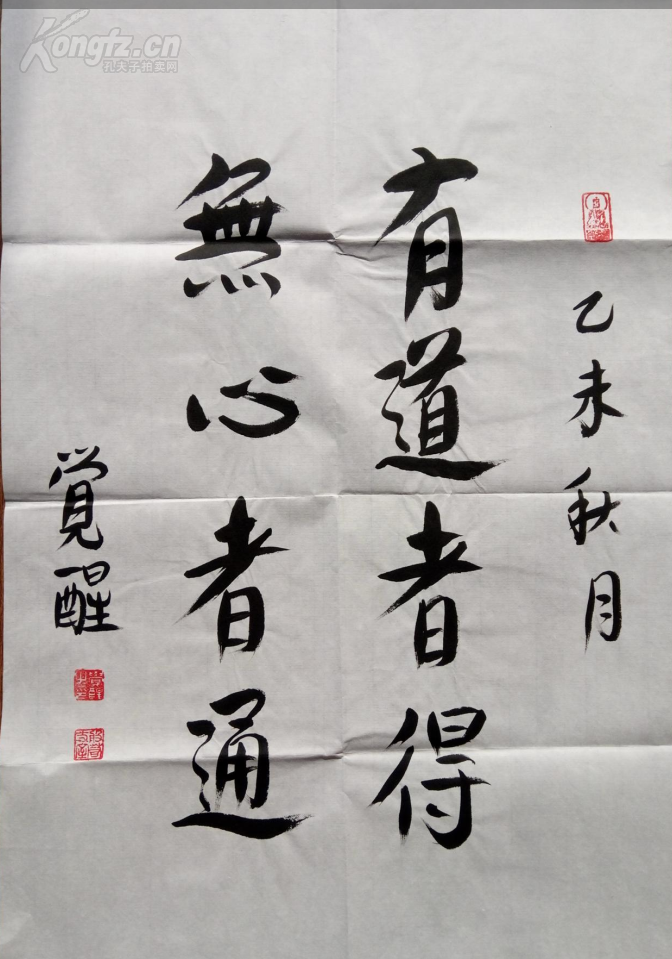 乙未秋月
有道者得
無心者通
覺醒
Kongfz.cn
孔夫子拍卖网